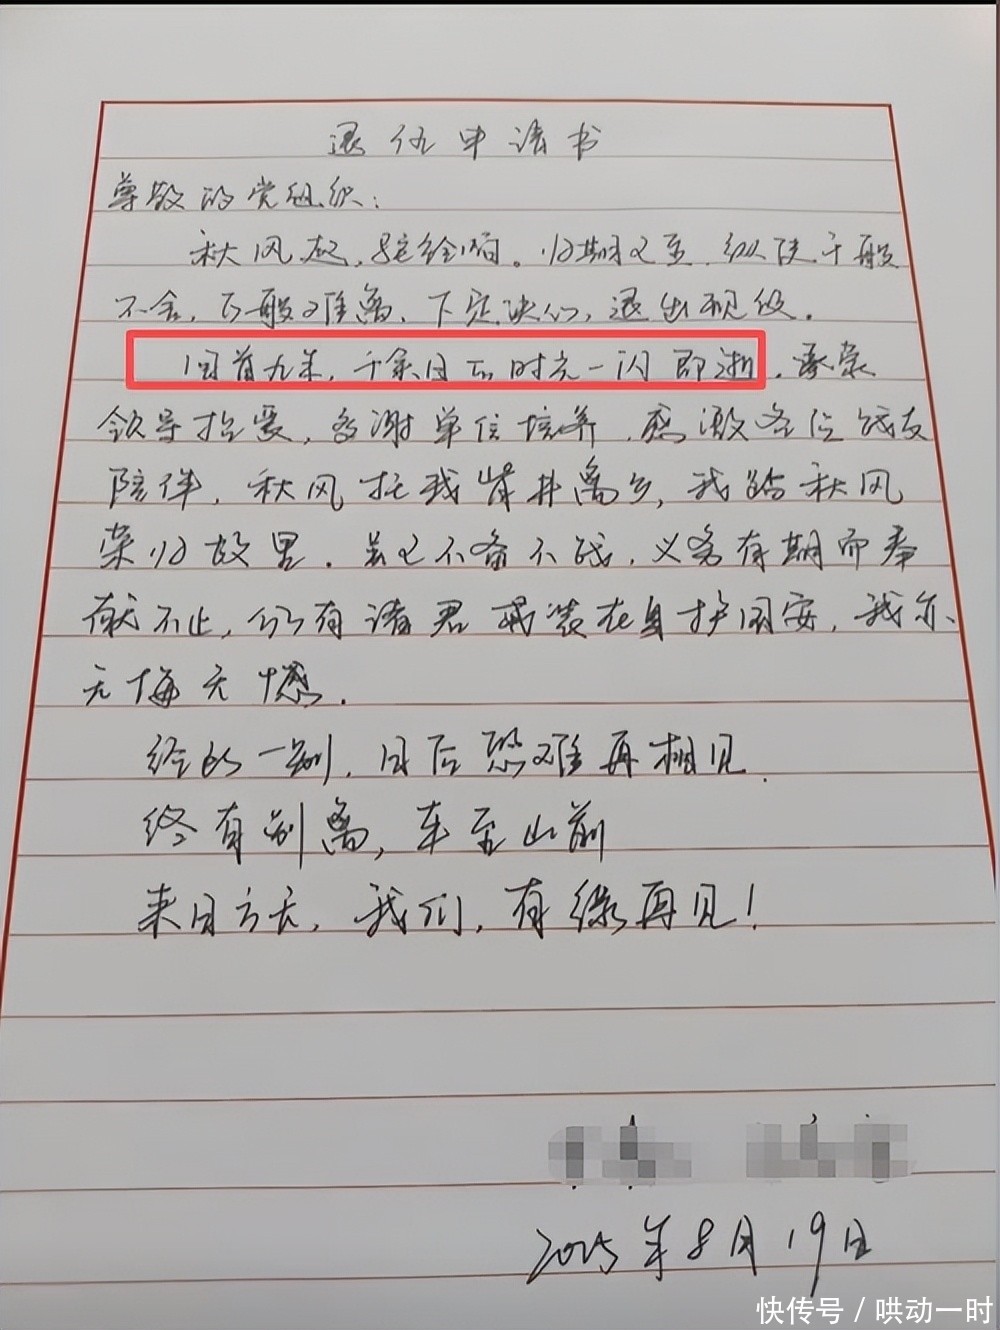 退伍申请书
尊敬的党组织：
秋风起，驼铃响。归期已至，纵使千般
不舍，百般难离，下定决心，退出现役。
回首九年，千余日夜时光一闪即逝，承蒙
领导抬爱，多谢单位培养，感激各位战友
陪伴，秋风托我背井离乡，我踏秋风
荣归故里。若已不备不战，义务有期而奉
献不止，仍有诸君戎装在身护国安，我亦
无悔无憾．
经此一别，日后恐难再相见．
终有别离，车至山前
来日方长，我们，有缘再见！
2025年8月19日
快传号 / 哄动一时